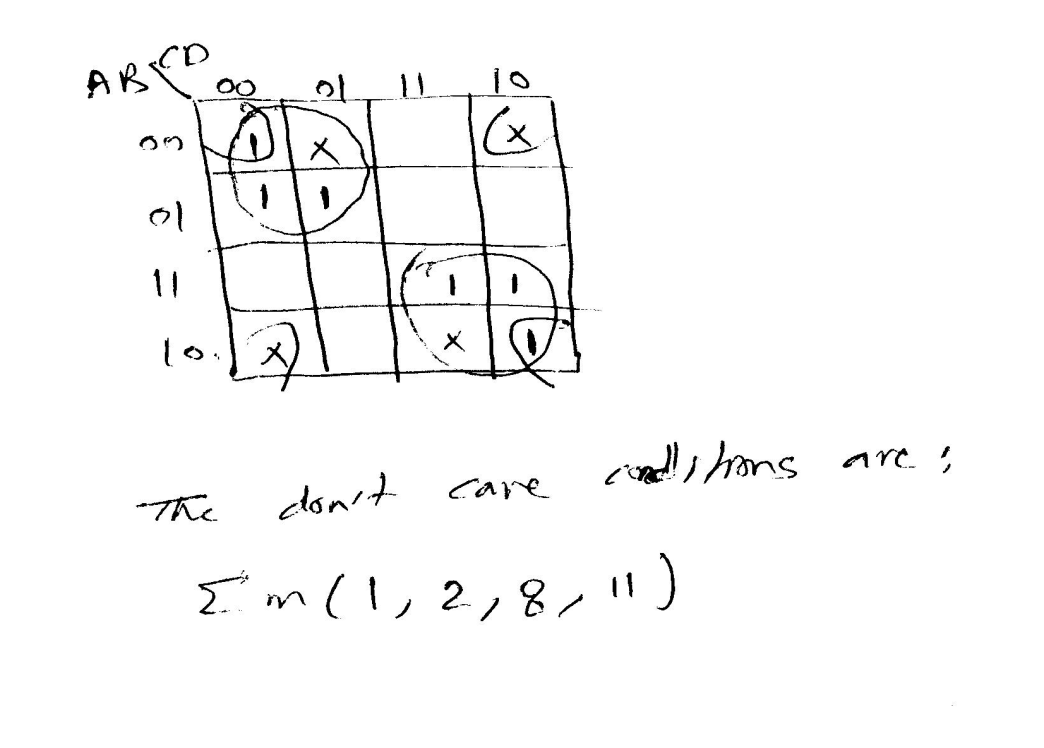 AB CD
00 01 11 10
00 1 X X
01 1 1
11 1 1
10 X X 1
The don't care conditions are:
Σm(1, 2, 8, 11)